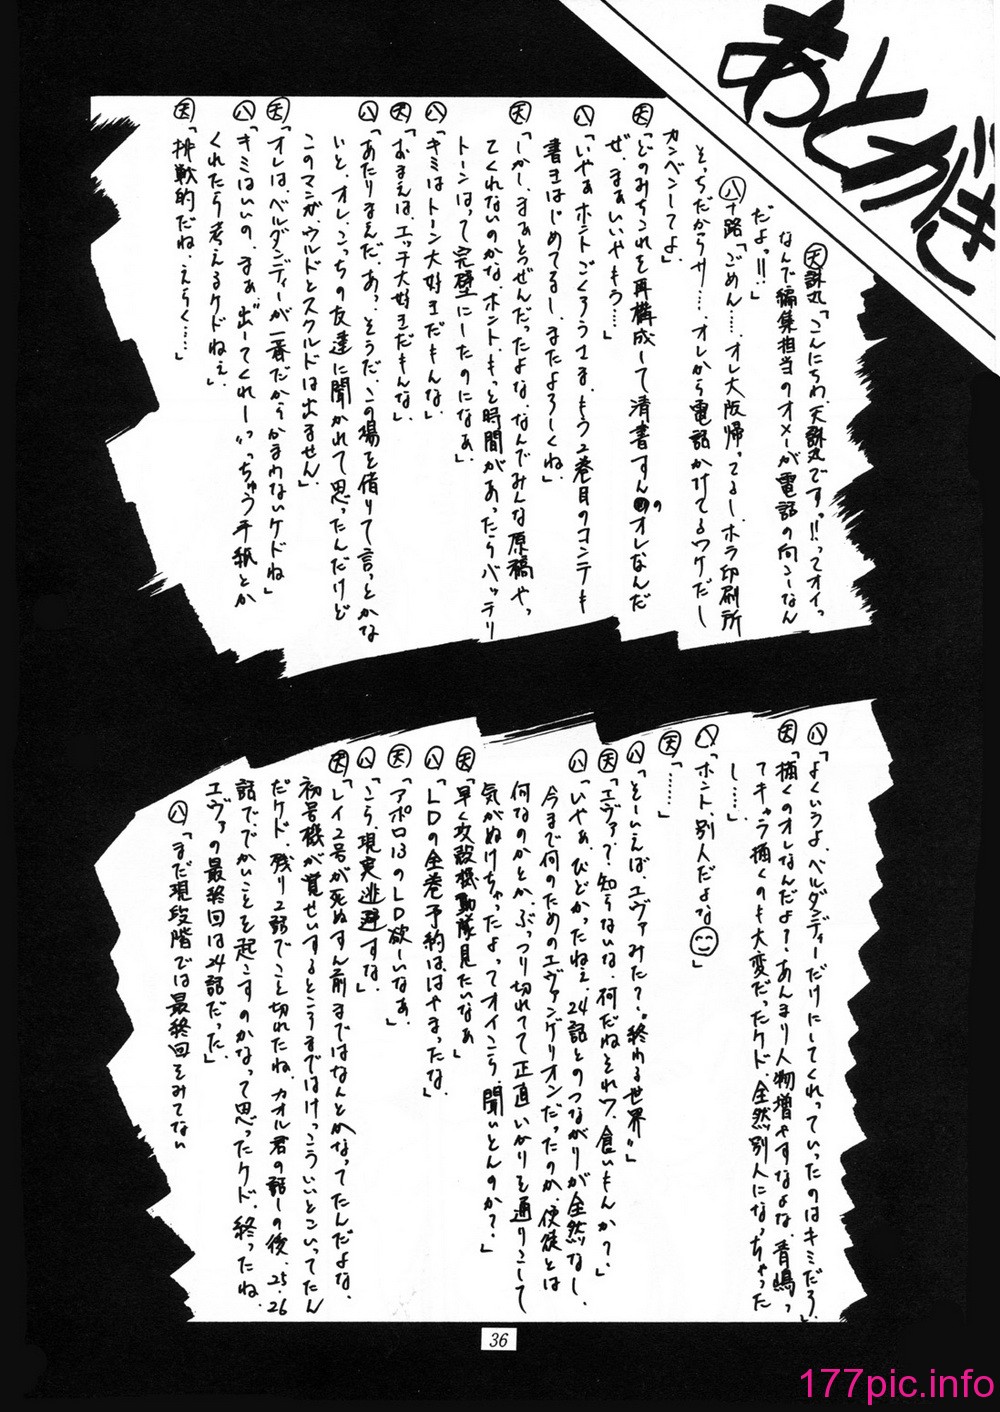 あとがき
天誅丸「こんにちわ、天誅丸です。!!ってオイっ
なんで編集担当のオメーが電話の向こーなん
だよっ!!」
八十路「ごめん……オレ大阪帰ってるし、ホラ印刷所
そっちだからサ……オレから電話かけてるワケだし
カンベンしてよ」
天「どのみちこれを再構成して清書すんのオレなんだ
ぜ、まぁいいやもう…」
八「いやぁホントごくろうさま、もう2巻目のコンテも
書きはじめてるし、またよろしくね」
天「しかし、まぁとうぜんだったよな、なんでみんな原稿やっ
てくれないのかな、ホント、もっと時間があったらバッチリ
トーンはって完璧にしたのになぁ」
八「キミはトーン大好きだもんな」
天「おまえは、エッチ大好きだもんな」
八「あたりまえだ、あっ、そうだ、この場を借りて言っとかな
いと、オレ、こっちの友達に聞かれて思ったんだけど
このマンガ、ウルドとスクルドは出ません」
天「オレは、ベルダンディーが一番だからかまわないケドね」
八「キミはいいの、まぁ"出してくれー"っちゅう手紙とか
くれたら考えるケドねぇ」
天「挑戦的だね、えらく……」
八「よくいうよ、ベルダンディーだけにしてくれっていったのはキミだろ」
天「描くのオレなんだよ?あんまり人物増やすなよな、青嶋っ
てキャラ描くのも大変だったケド、全然別人になっちゃった
し……」
八「ホント、別人だよな」
天「……」
八「そーいえば、エヴァみた?"終わる世界"」
天「エヴァ?知らないな、何だねそれワ、食いもんか?」
八「いやぁ、ひどかったねぇ、24話とのつながりが全然ッなし、
今まで何のためのエヴァンゲリオンだったのか、使徒とは
何なのかとか、ぶっつり切れてて正直いかりを通りこして
気がぬけちゃったよってオイこら、聞いとんのか?」
天「早く攻殻機動隊見たいなぁ」
八「LDの全巻予約は、はやまったな」
天「アポロ13のLD欲しいなぁ」
八「こら、現実逃避すな」
天「レイ2号が死ぬすん前まではなんとかなってたんだよな、
初号機が覚せいするところまではけっこういいとこいってたん
だケド、残り2話でこと切れたね、カオル君の話しの後、25、26
話ででかいことを起こすのかなって思ったケド、終ったね、
エヴァの最終回は24話だった」
八「まだ現段階では最終回をみてない
36
177pic.info